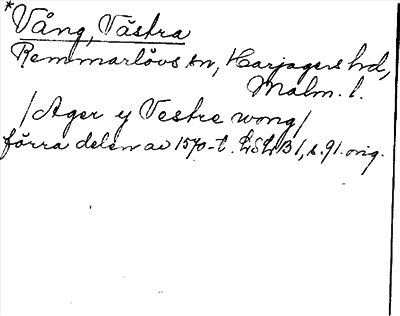 *Vång, Västra
Remmarlövs sn, Harjagers hd,
Malm. l.
/Ager y Vestre wong/
förra delen av 1570-t. LSLB 1, s. 91. orig.